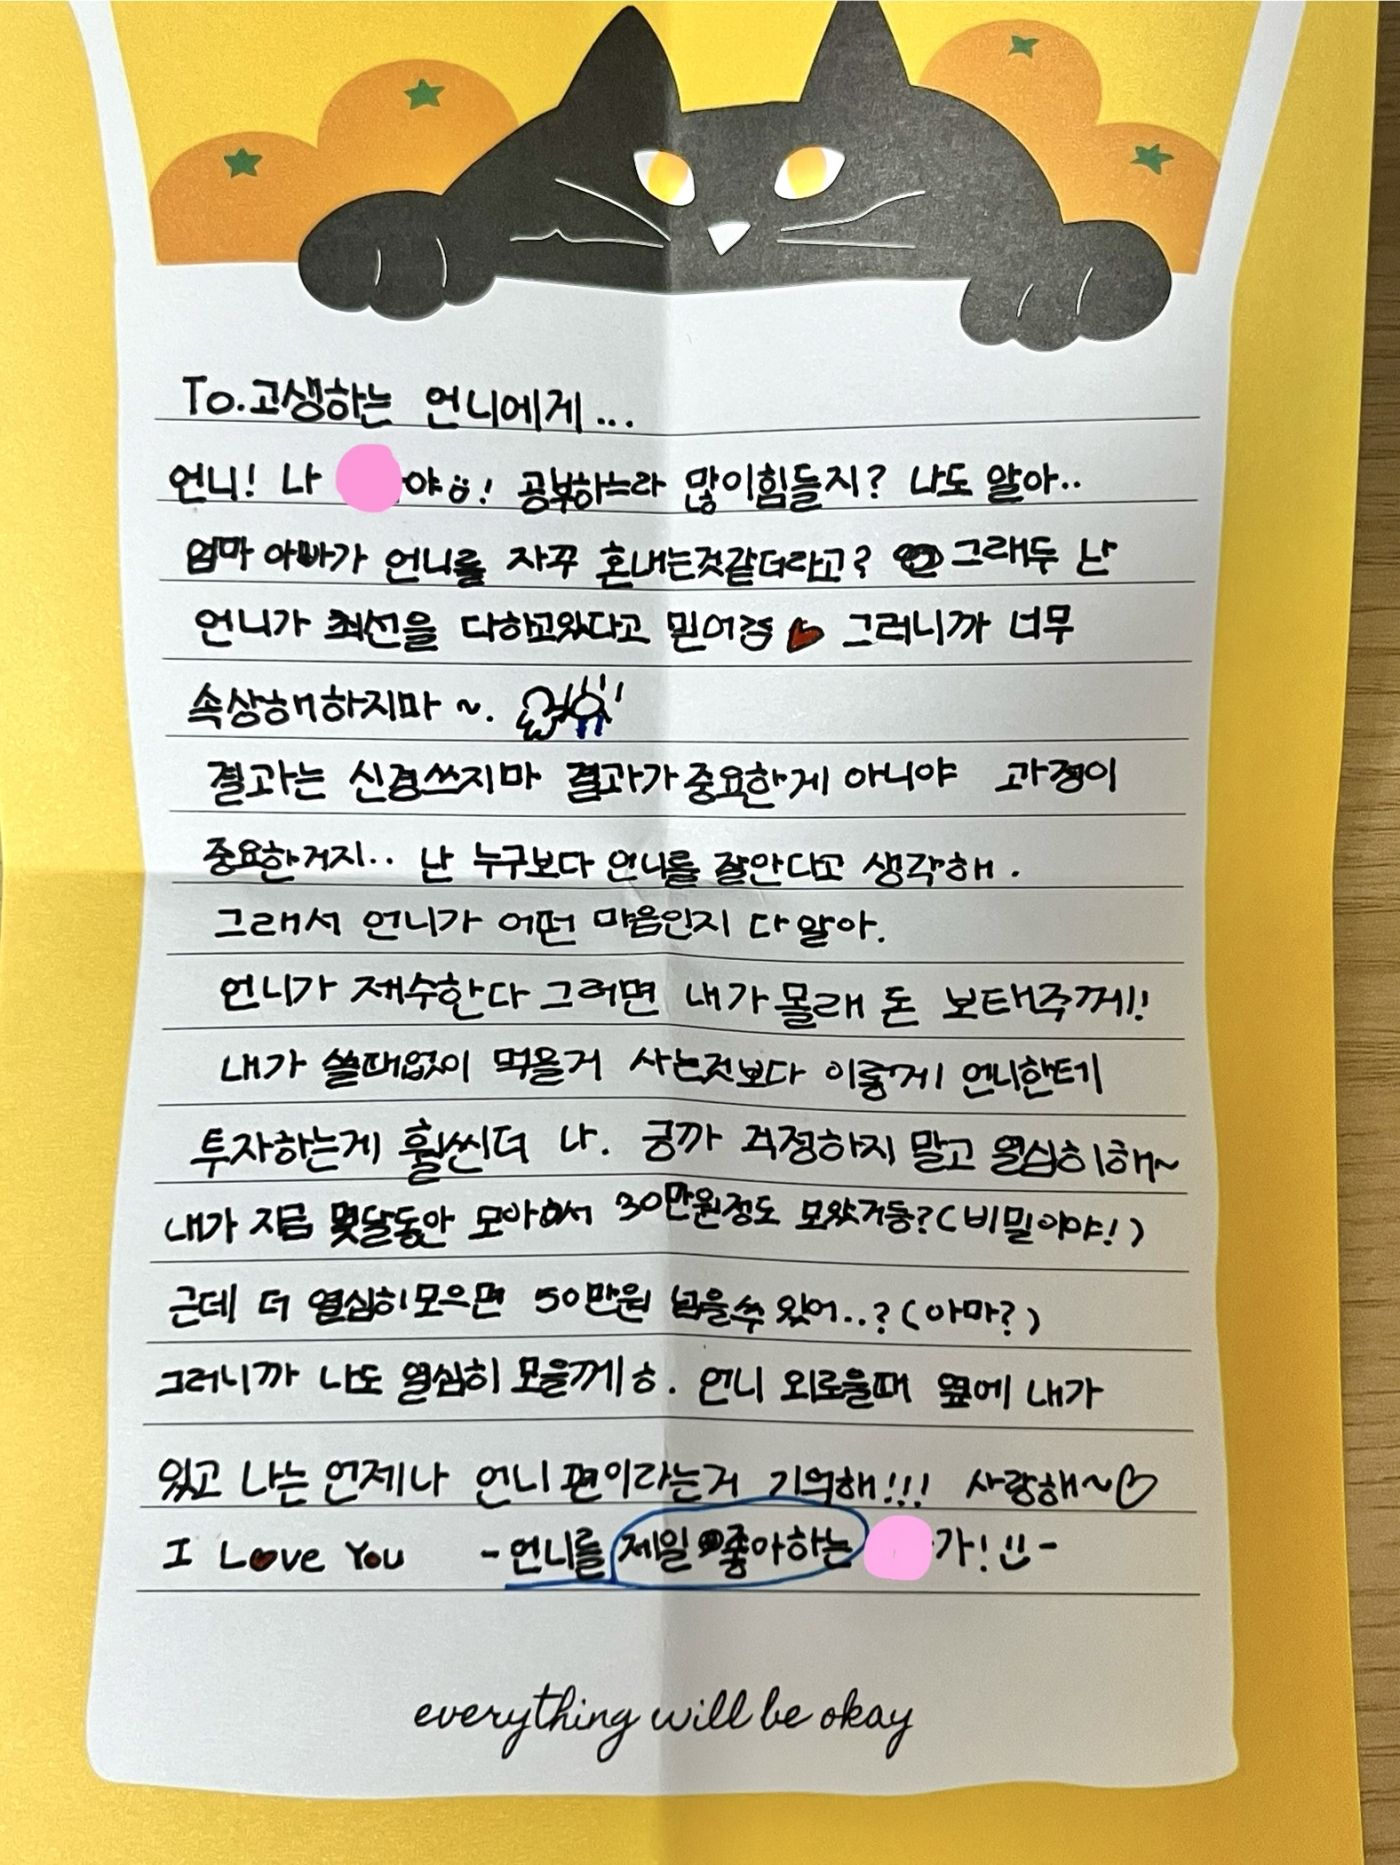 To.고생하는 언니에게...
언니! 나 야ㅎ! 공부하느라 많이힘들지? 나도 알아..
엄마 아빠가 언니를 자꾸 혼내는것같더라고? 그래두 난
언니가 최선을 다하고있다고 믿어 그러니까 너무
속상해하지마 ~.
결과는 신경쓰지마 결과가 중요한게 아니야 과정이
중요한거지.. 난 누구보다 언니를 잘안다고 생각해.
그래서 언니가 어떤 마음인지 다 알아.
언니가 재수한다 그러면 내가 몰래 돈 보태주께!
내가 쓸때없이 먹을거 사는것보다 이렇게 언니한테
투자하는게 훨씬더 나. 긍까 걱정하지 말고 열심히해~
내가 지금 몇달동안 모아서 30만원정도 모았거등?(비밀이야!)
근데 더 열심히모으면 50만원 넘을쑤 있어..?(아마?)
그러니까 나도 열심히 모을께ㅎ. 언니 외로울때 옆에 내가
있고 나는 언제나 언니 편이라는거 기억해!!! 사랑해~♡
I Love You -언니를 제일 좋아하는 가! -
everything will be okay